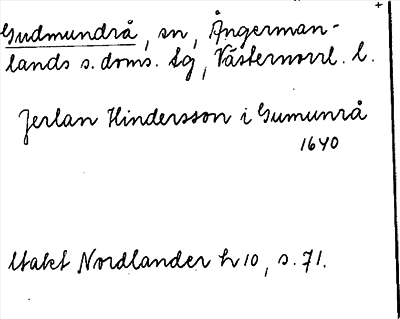 Gudmundrå, sn, Ångerman-
lands s. doms. tg, Västernorrl. l.
Jerlan Hindersson i Gumunrå
1640
Utakt Nordlander h 10, s. 71.